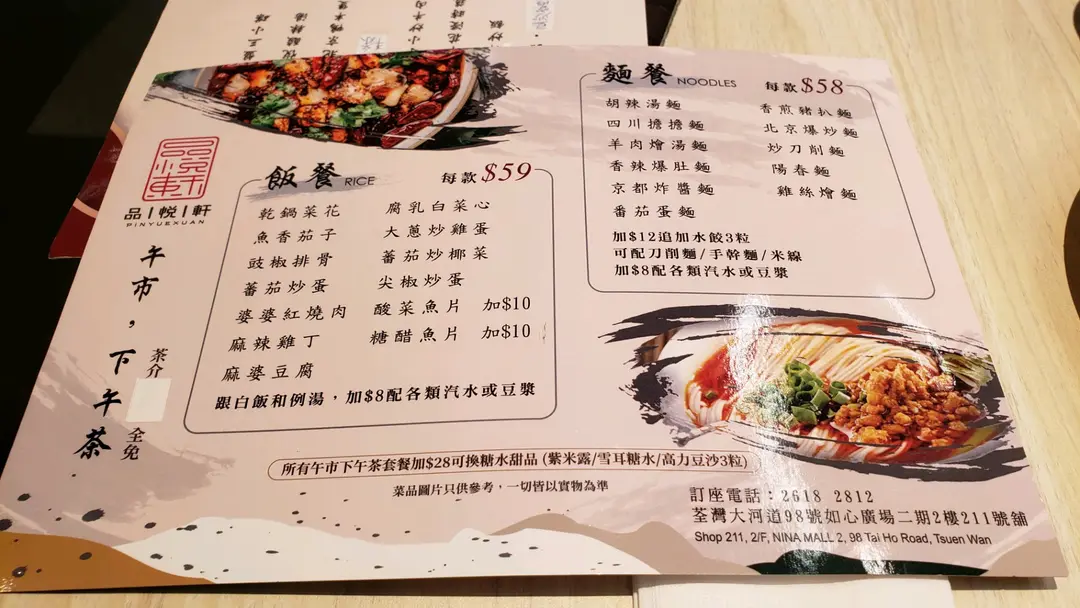 品悦軒
品|悅|軒
PINYUEXUAN
午市，下午茶
茶介
全免
飯餐 RICE 每款 $59
乾鍋菜花 腐乳白菜心
魚香茄子 大蔥炒雞蛋
豉椒排骨 番茄炒椰菜
番茄炒蛋 尖椒炒蛋
婆婆紅燒肉 酸菜魚片 加$10
麻辣雞丁 糖醋魚片 加$10
麻婆豆腐
跟白飯和例湯，加$8配各類汽水或豆漿
麵餐 NOODLES 每款 $58
胡辣湯麵 香煎豬扒麵
四川擔擔麵 北京爆炒麵
羊肉燴湯麵 炒刀削麵
香辣爆肚麵 陽春麵
京都炸醬麵 雞絲燴麵
番茄蛋麵
加$12追加水餃3粒
可配刀削麵/手幹麵/米線
加$8配各類汽水或豆漿
所有午市下午茶套餐加$28可換糖水甜品 (紫米露/雪耳糖水/高力豆沙3粒)
菜品圖片只供參考，一切皆以實物為準
訂座電話：2618 2812
荃灣大河道98號如心廣場二期2樓211號舖
Shop 211, 2/F, NINA MALL 2, 98 Tai Ho Road, Tsuen Wan